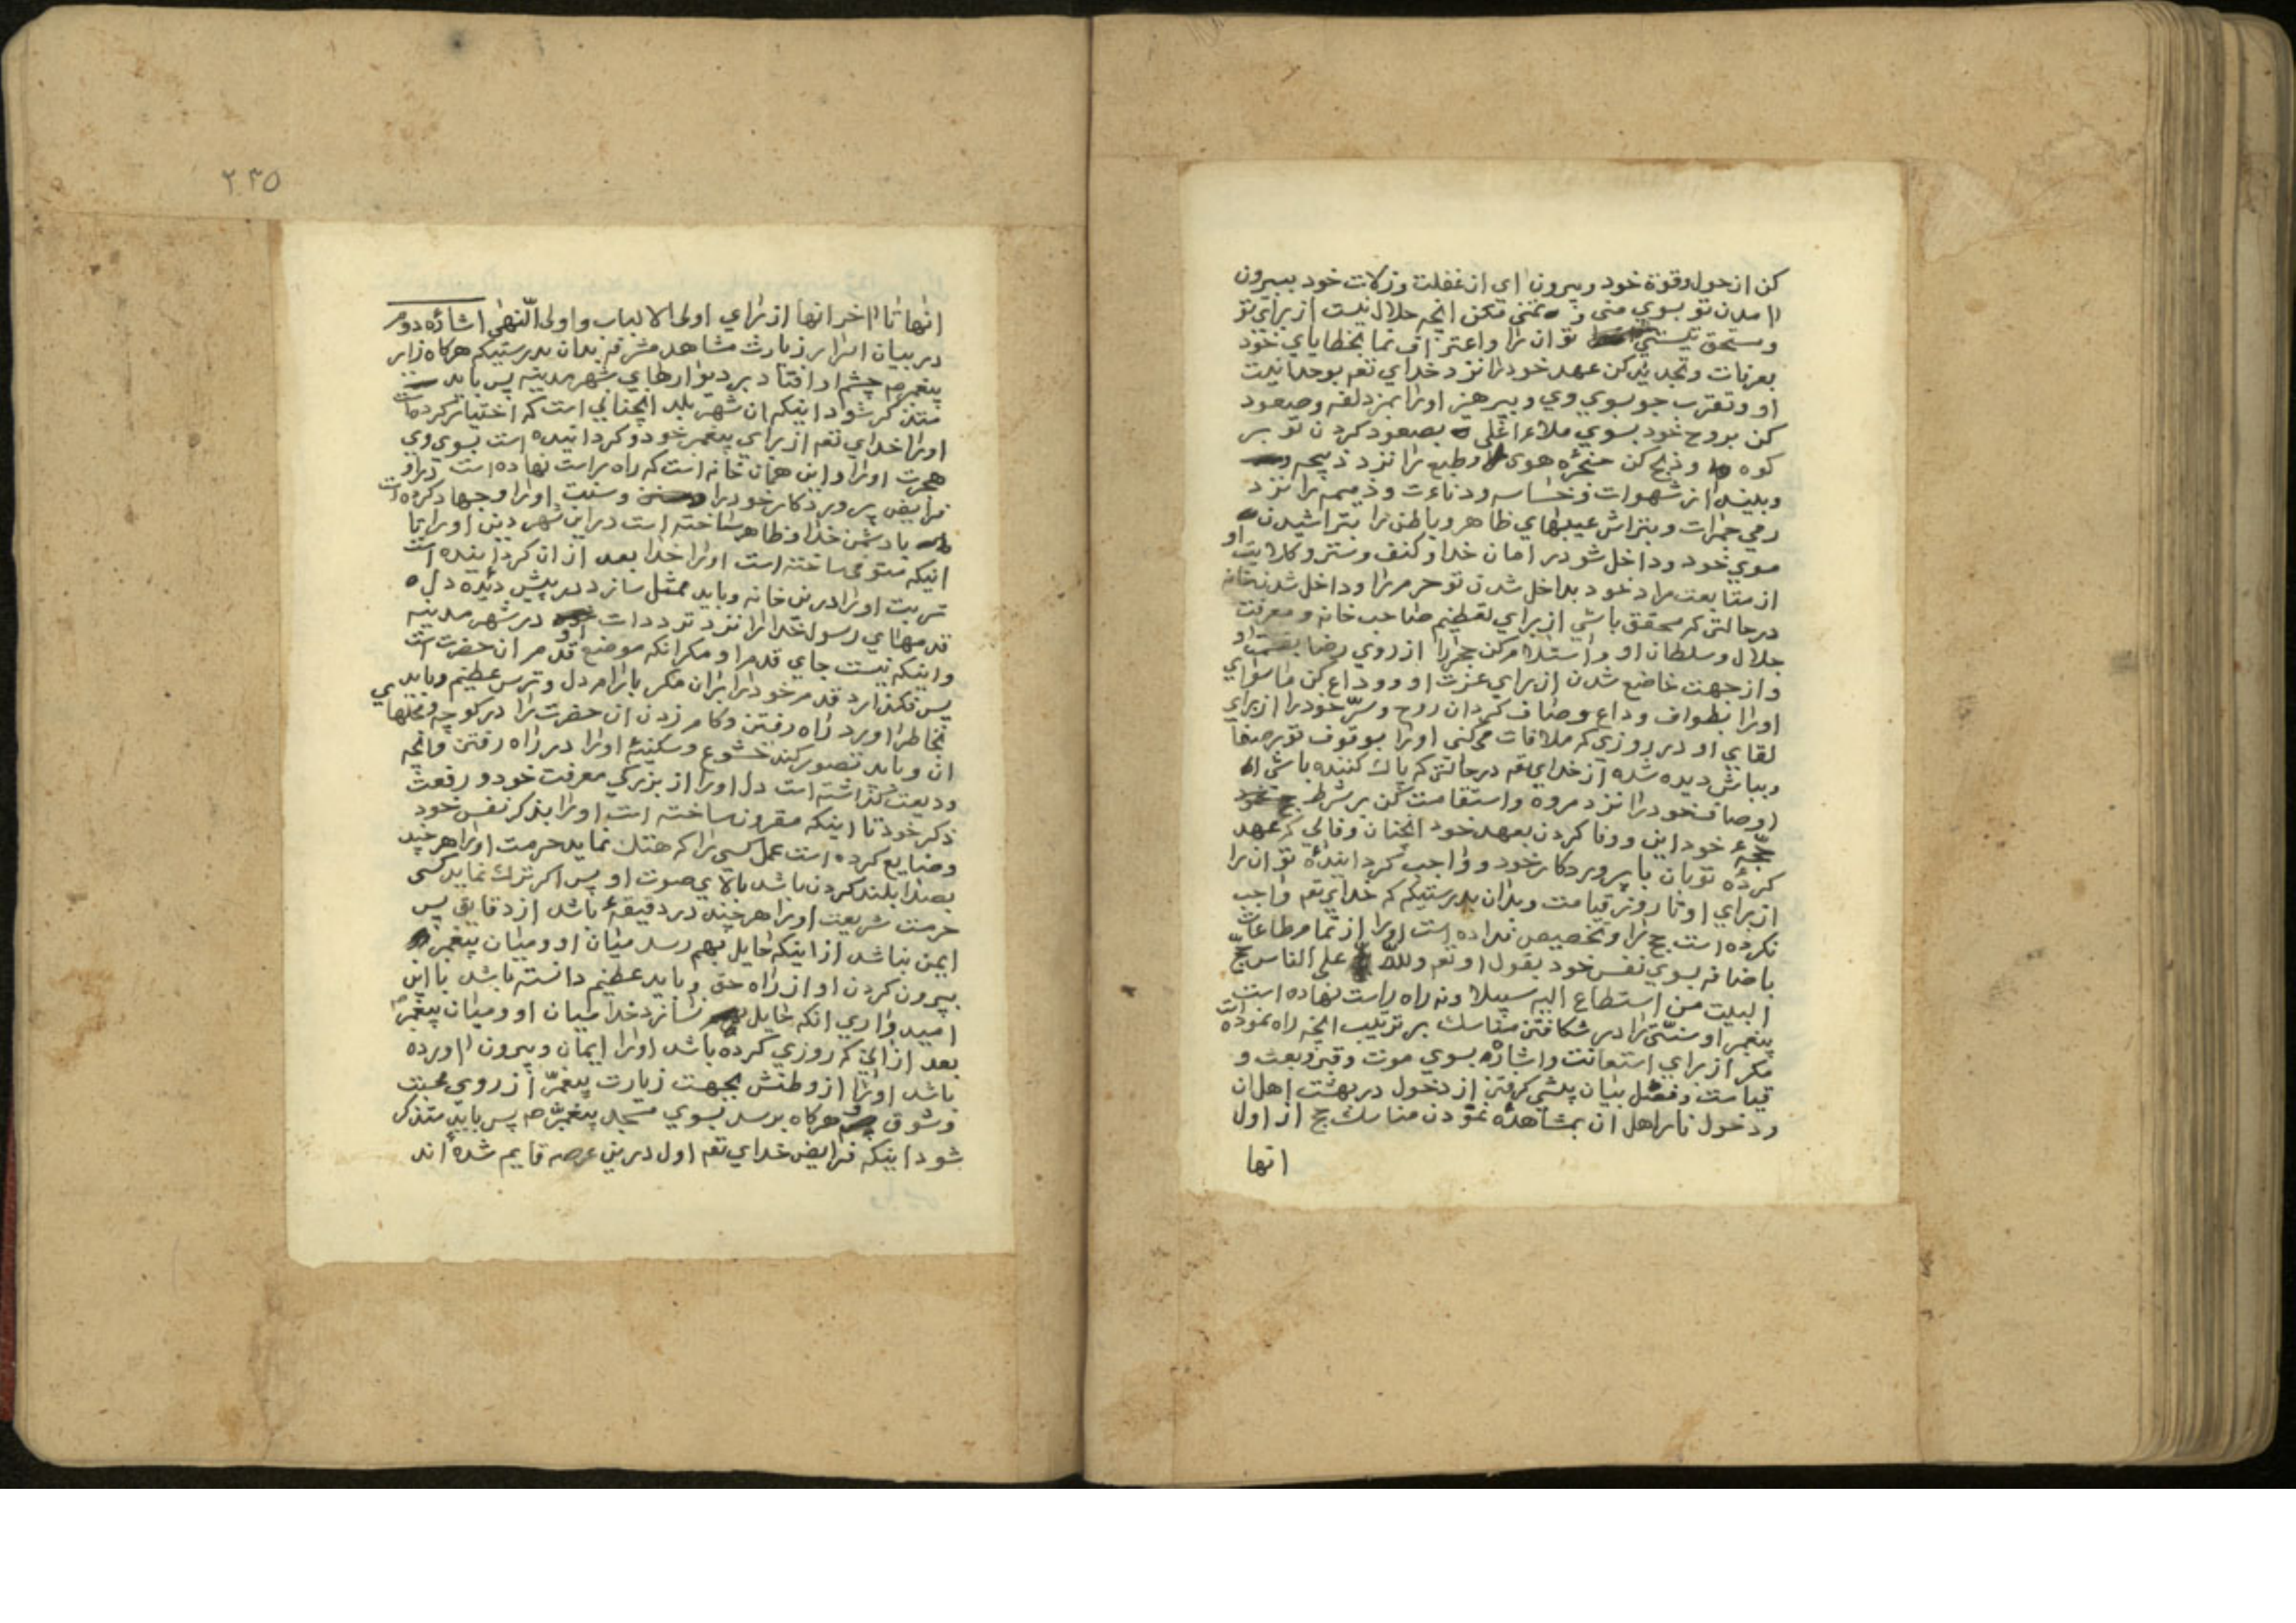 کن از حول و قوة خود و بیرون ای از غفلت و زلات خود ببیرون
امدن تو بسوی منی و تمنی مکن انچه حلال نیست از برای تو
و مستحق نیستی تو ان را و اعتراف نما بخطایای خود
بعرفات و تجدید کن عهد خود را نزد خدای تعم بوحدانیت
او و تقرب جو بسوی وی و بپرهیز او را بمزدلفه و صعود
کن بروح خود بسوی ملاء اعلی بصعود کردن تو بر
کوه و ذبح کن حنجرهٔ هوی و طمع را نزد ذبیحه
و بیند از شهوات و خساسه و دناءت و ذمیمه را نزد
رمی جمرات و بتراش عیبهای ظاهر و باطن را بتراشیدن
موی خود و داخل شو در امان خدا و کنف و ستر و کلایت او
از متابعت مراد خود بداخل شدن تو حرم را و داخل شدن خانه
در حالتی که محقق باشی از برای تعظیم صاحب خانه و معرفت
جلال و سلطان او و استلام کن حجر را از روی رضا بقسمت او
و از جهت خاضع شدن از برای عزت او و وداع کن ماسوای
او را بطواف وداع و صاف کردان روح و سرّ خود را از برای
لقای او در روزی که ملاقات می کنی او را بوقوف تو بر صفا
و بباش دیده شده از خدای تعه در حالتی که پاک کننده باشی
اوصاف خود را نزد مروه و استقامت کن بر شرط
حجهٔ خود این و وفا کردن بعهد خود انچنان وفائی که عهد
کردهٔ تو بان با پروردکار خود و واجب کرد اینده تو ان را
از برای او تا روز قیامت و بدان بدرستیکه که خدای تعم واجب
نکرده است حج را و تخصیص نداده است او را از تمام طاعات
باضافه بسوی نفس خود بقول او تعم و لله علی الناس حج
البیت من استطاع الیه سبیلا و نه راه راست نهاده است
پیغمبر او سنّتی را در شکافتن مناسک بر ترتیب انچه راه نموده است
مکر از برای استعانت و اشاره بسوی موت و قبر و بعث و
قیامت و فصل بیان پیشی کرفتن از دخول در بهشت اهل ان
و دخول نار اهل ان بمشاهدهٔ نمودن مناسک حج از اول
انها
۲۳۵
انها تا اخر انها از برای اولی الالباب و اولی النهی اشارهٔ دوم
در بیان اسرار زیارت مشاهد مشرفه بدان بدرستیکه هرکاه زایر
پیغمبرص چشم او افتاد بر دیوارهای شهر مدینه پس باید
متذکر شود اینکه ان شهر بلد انچنانی است که اختیار کرده است
او را خدای تعم از برای پیغمبر خود و کردانیده است بسوی وی
هجرت او را و این همان خانه است که راه راست نهاده است در او
فرایض پروردکار خود را و سنت او را و جهاد کرده است
با دشمن خدا و ظاهر ساخته است در این شهر دین او را تا
انیکه متوفی ساخته است او را خدا بعد از ان کرد اینده است
تربت او را در ین خانه و باید ممثل سازد در پیش دیده دل
قدمهای رسول خدا را نزد ترددات او در شهر مدینه
و اینکه نیست جای قدم او مکر انکه موضع قدم ان حضرت است
پس نکذارد قدم خود را بران مکر بارام دل و ترس عظیم و باید
بخاطر اورد راه رفتن و کام زدن ان حضرت را در کوچه و نخلهای
ان و باید تصور کند خشوع و سکینهٔ او را در راه رفتن و انچه
ودیعت کذاشته است دل او را از بزرکی معرفت خود و رفعت
ذکر خود تا اینکه مقرون ساخته است او را بذکر نفس خود
و ضایع کرده است عمل کسی را که هتک نماید حرمت او را هر چند
بصدا بلند کردن باشد بالای صوت او پس اکر ترک نماید کسی
حرمت شریعت او را هر چند در دقیقهٔ باشد از دقایق پس
ایمن نباشد از اینکه حایل بهم رسد میان او و میان پیغمبر
بیرون کردن او از راه حق و باید عظیم دانسته باشد با این
امیدواری انکه حایل نسازد خدا میان او و میان پیغمبرص
بعد از انی که روزی کرده باشد او را ایمان و بیرون اورده
باشد او را از وطنش بجهت زیارت پیغمبرّ از روی محبت
و شوق و هرکاه برسد بسوی مسجد پیغمبرص پس باید متذکر
شود اینکه فرایض خدای تعم اول در ین عرصه قایم شده اند